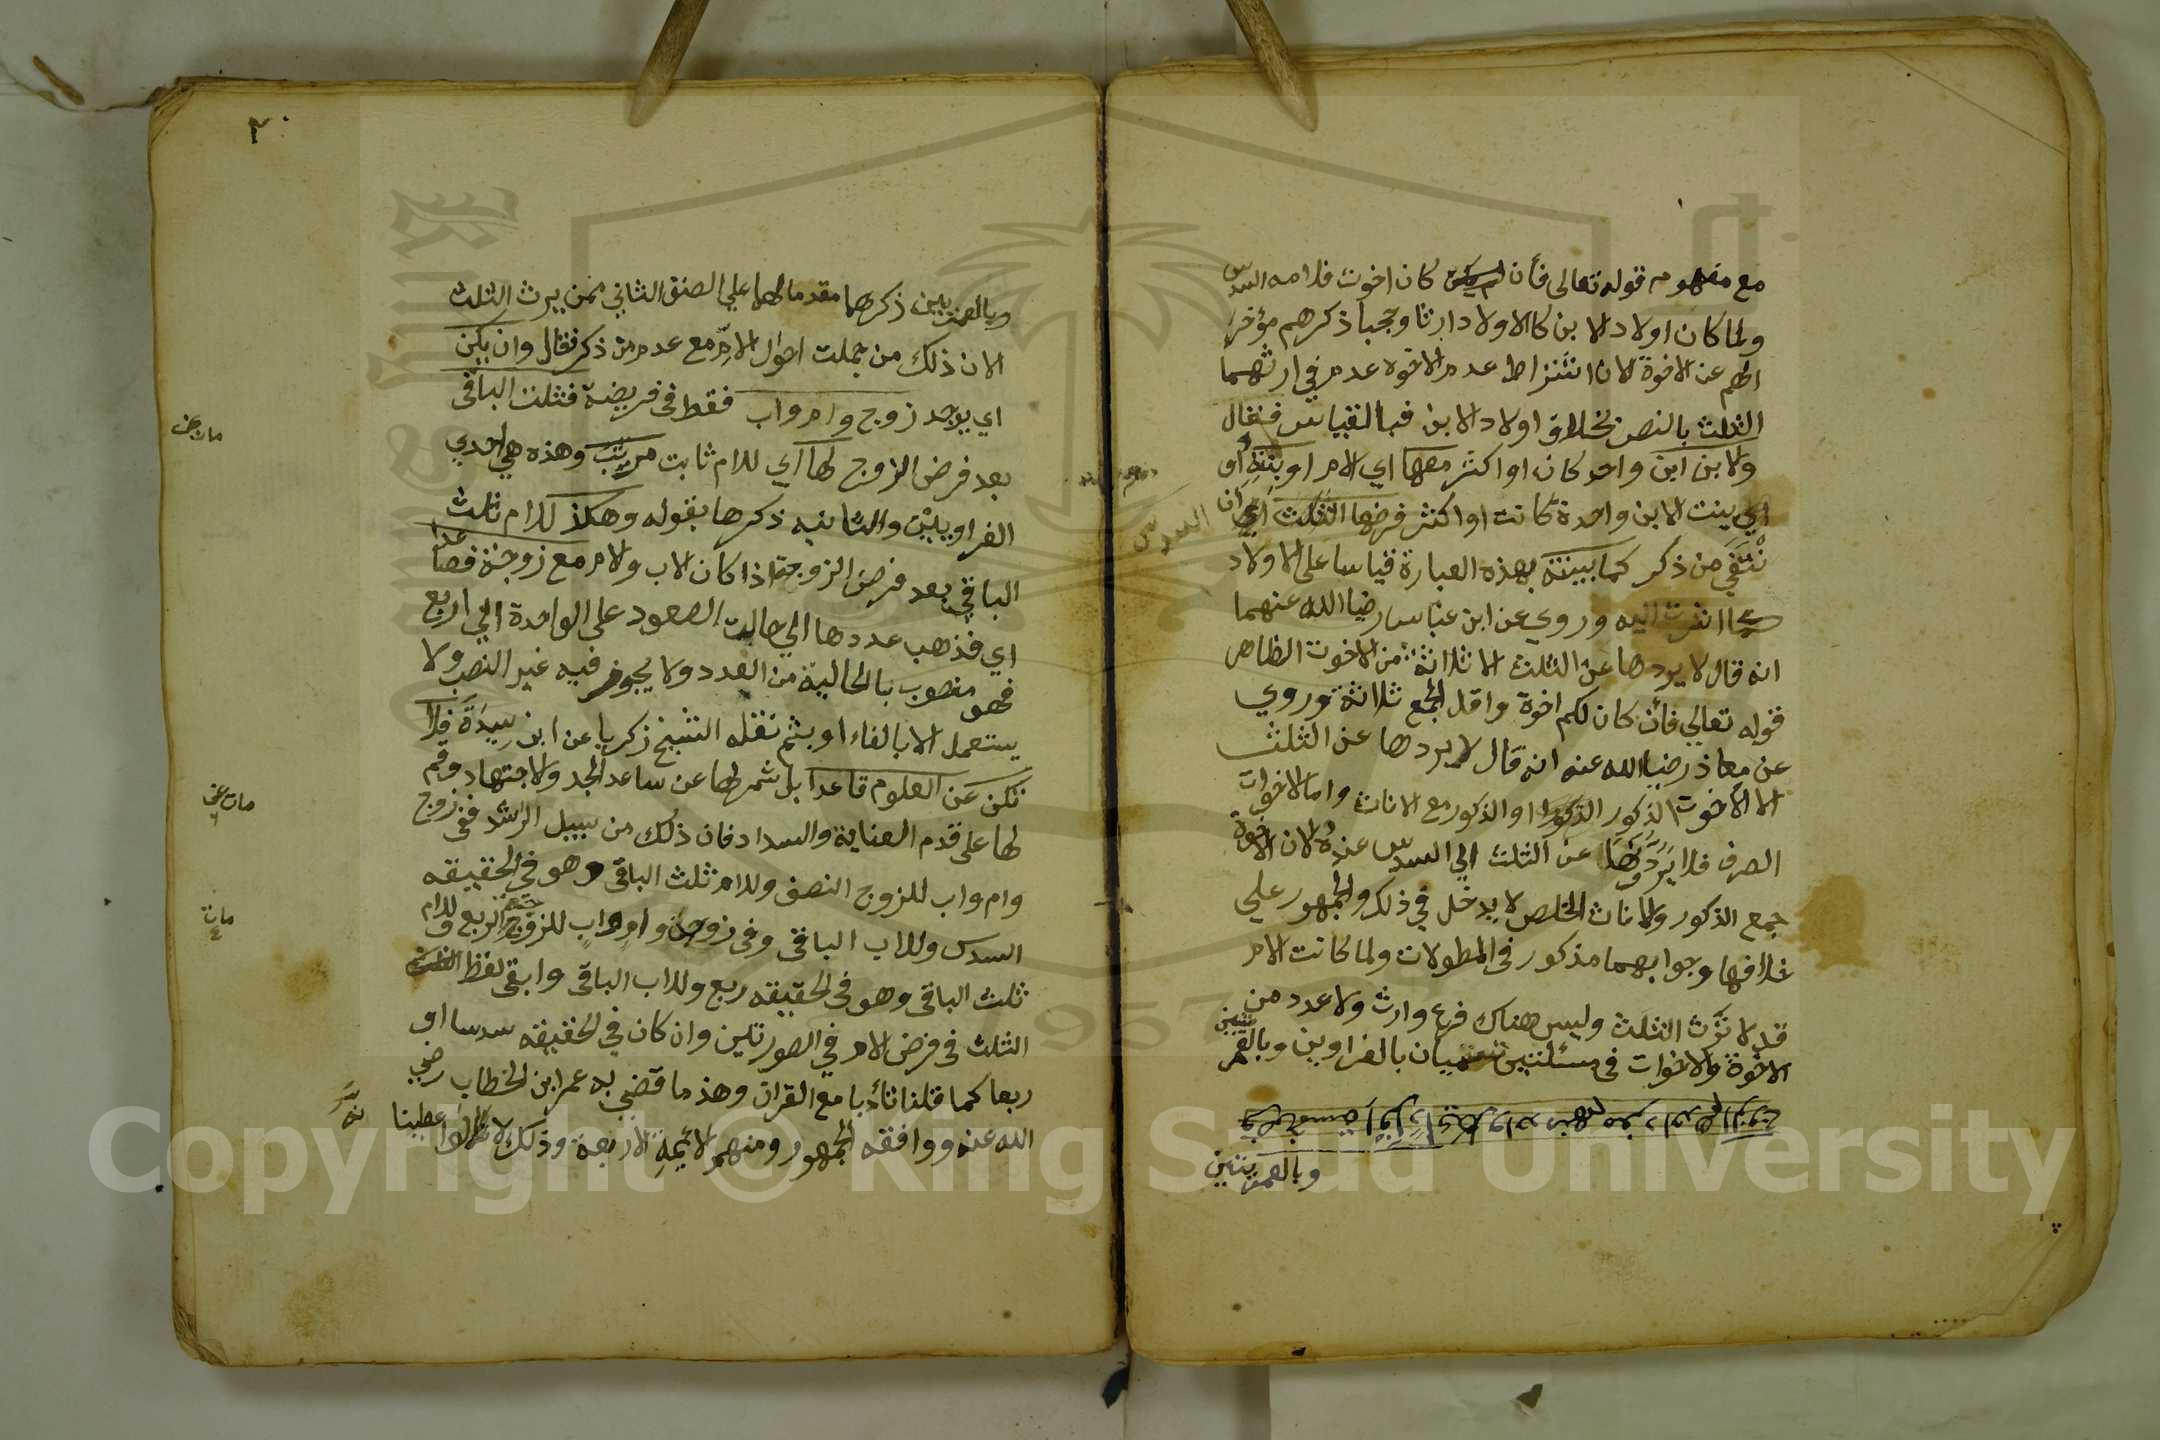 مع مفهوم قوله تعالى فأن كان اخوت فلامه السدس
ولما كان اولاد الابن كالاولاد ارثا وحجبا ذكرهم مؤخرا
لهم عن الاخوة لان اشتراط عدم الاخوه عدم في ارثهما
الثلث بالنص بخلاف اولاد الابن فبالقياس فقال
ولا بن ابن واحد كان او اكثر معها اي الام او بنته او
اي بنت الابن واحدة كانت او اكثر فرضها الثلث اي ان
السدس
نتفي من ذكر كما بينته بهذه العبارة قياسا على الاولاد
كما اشرت اليه وروي عن ابن عباس رضيا الله عنهما
انه قال لا يردها عن الثلث الا ثلاثة من الاخوت الظاهر
قوله تعالي فأن كان لكم اخوة واقل الجمع ثلاثة وروي
عن معاذ رضيا الله عنه انه قال لا يردها عن الثلث
الا الاخوت الذكور او الذكور مع الاناث واما الاخوات
الصرف فلا يردونها عن الثلث الي السدس عنده لان الاخوة
جمع الذكور والاناث الخلص لا يدخل في ذلك والجمهور علي
خلافها وجوابهما مذكور في المطولات ولما كانت الام
قد لا ترث الثلث وليس هناك فرع وارث ولا عدد من
الاخوة والاخوات في مسئلتين تسميان بالغراوين وبالغر
وبالعمريتين
٢٠
وبالعمريتين ذكرهما مقدما لهما علي الصنف الثاني ممن يرث الثلث
لان ذلك من جملت احوال الام مع عدم من ذكر فقال وان يكن
اي يوجد زوج وام واب فقط في فريضة فثلث الباقي
بعد فرض الزوج لها اي للام ثابت مرتب وهذه هي احدي
الغراويين والثانيه ذكرها بقوله وهكذ للام ثلث
الباقي بعد فرض الزوجة اذا كان الاب والام مع زوجة فصاعدا
اي فذهب عددها الي حالت الصعود على الواحدة الي اربع
فهو منصوب بالحالية من العدد ولا يجوز فيه غير النصب ولا
يستعمل الا بالفاء او بثم نقله الشيخ زكريا عن ابن سيدة فلا
تكن عن العلوم قاعدا بل شمر لها عن ساعد الجد والاجتهاد وقم
لها على قدم العناية والسداد فان ذلك من سبيل الرشد ففي زوج
وام واب للزوج النصف وللام ثلث الباقي وهو في الحقيقه
السدس وللاب الباقي وفي زوجة وام واب للزوجة الربع وللام
ثلث الباقي وهو في الحقيقه ربع وللاب الباقي وابقي لفظ
الثلث في فرض الام في الصورتين وان كان في الحقيقه سدسا او
ربعا كما قلنا تأدبا مع القران وهذ ما قضي به عمر ابن الخطاب رضي
الله عنه ووافقه الجمهور ومنهم الائيمة الاربعة وذلك لا
مات عن
مات عن
مات
Copyright © King Saud University
1957